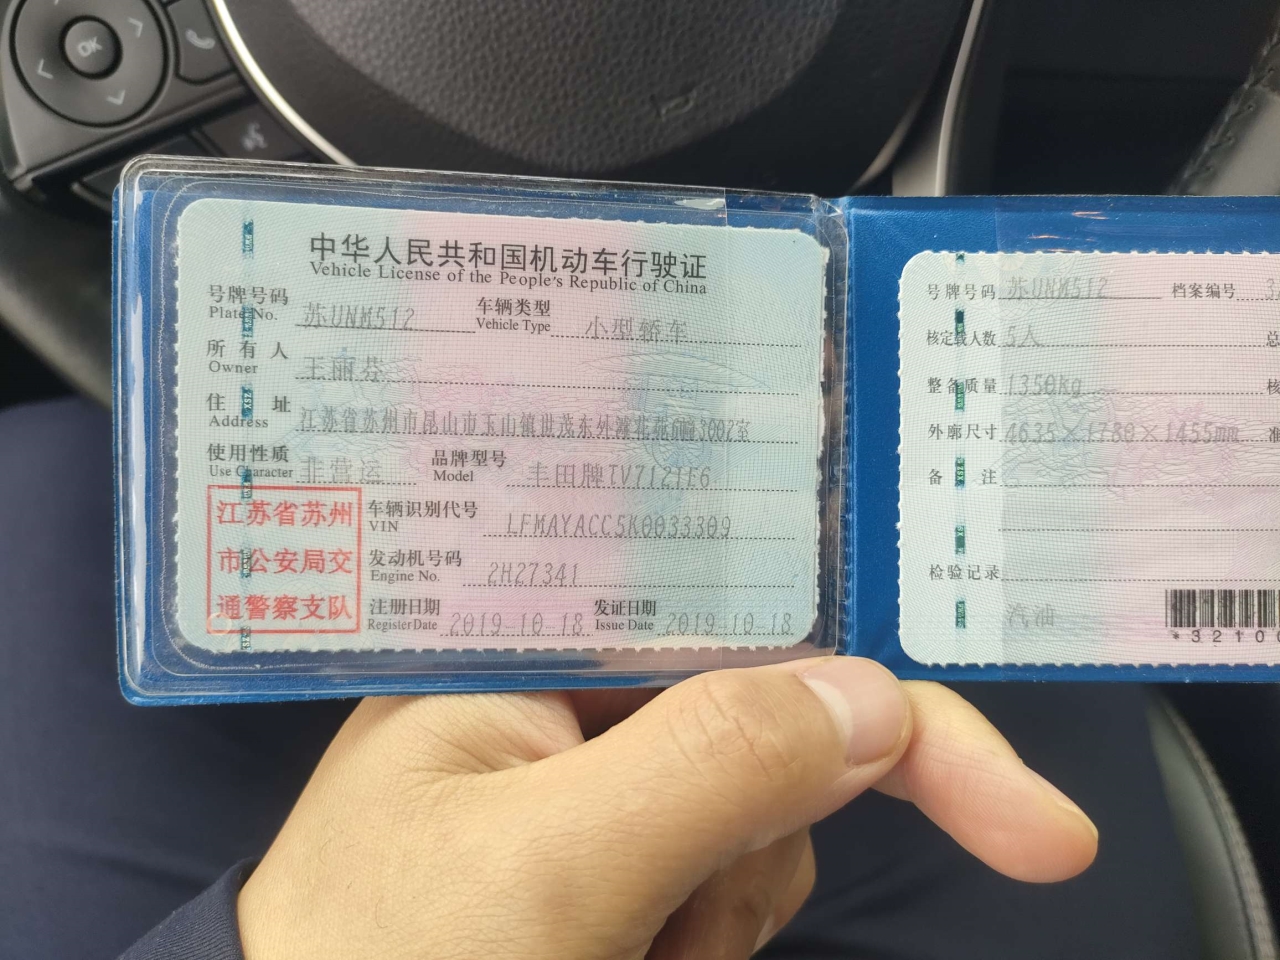 OK
中华人民共和国机动车行驶证
Vehicle License of the People's Republic of China
号牌号码 苏UNM512 车辆类型 小型轿车
Plate No. Vehicle Type
所有人 王丽芬
Owner
住址 江苏省苏州市昆山市玉山镇世茂东外滩北苑 3002室
Address
使用性质 非营运 品牌型号 丰田牌TV7121E6
Use Character Model
江苏省苏州
市公安局交
通警察支队
车辆识别代号 LFMAYACC5K0033309
VIN
发动机号码 2H27341
Engine No.
注册日期 2019-10-18 发证日期 2019-10-18
Register Date Issue Date
号牌号码 苏UNM512 档案编号 3
核定载人数 5人 总
整备质量 1350kg 核
外廓尺寸 4635×1780×1455mm 准
备注
检验记录
汽油
*3210